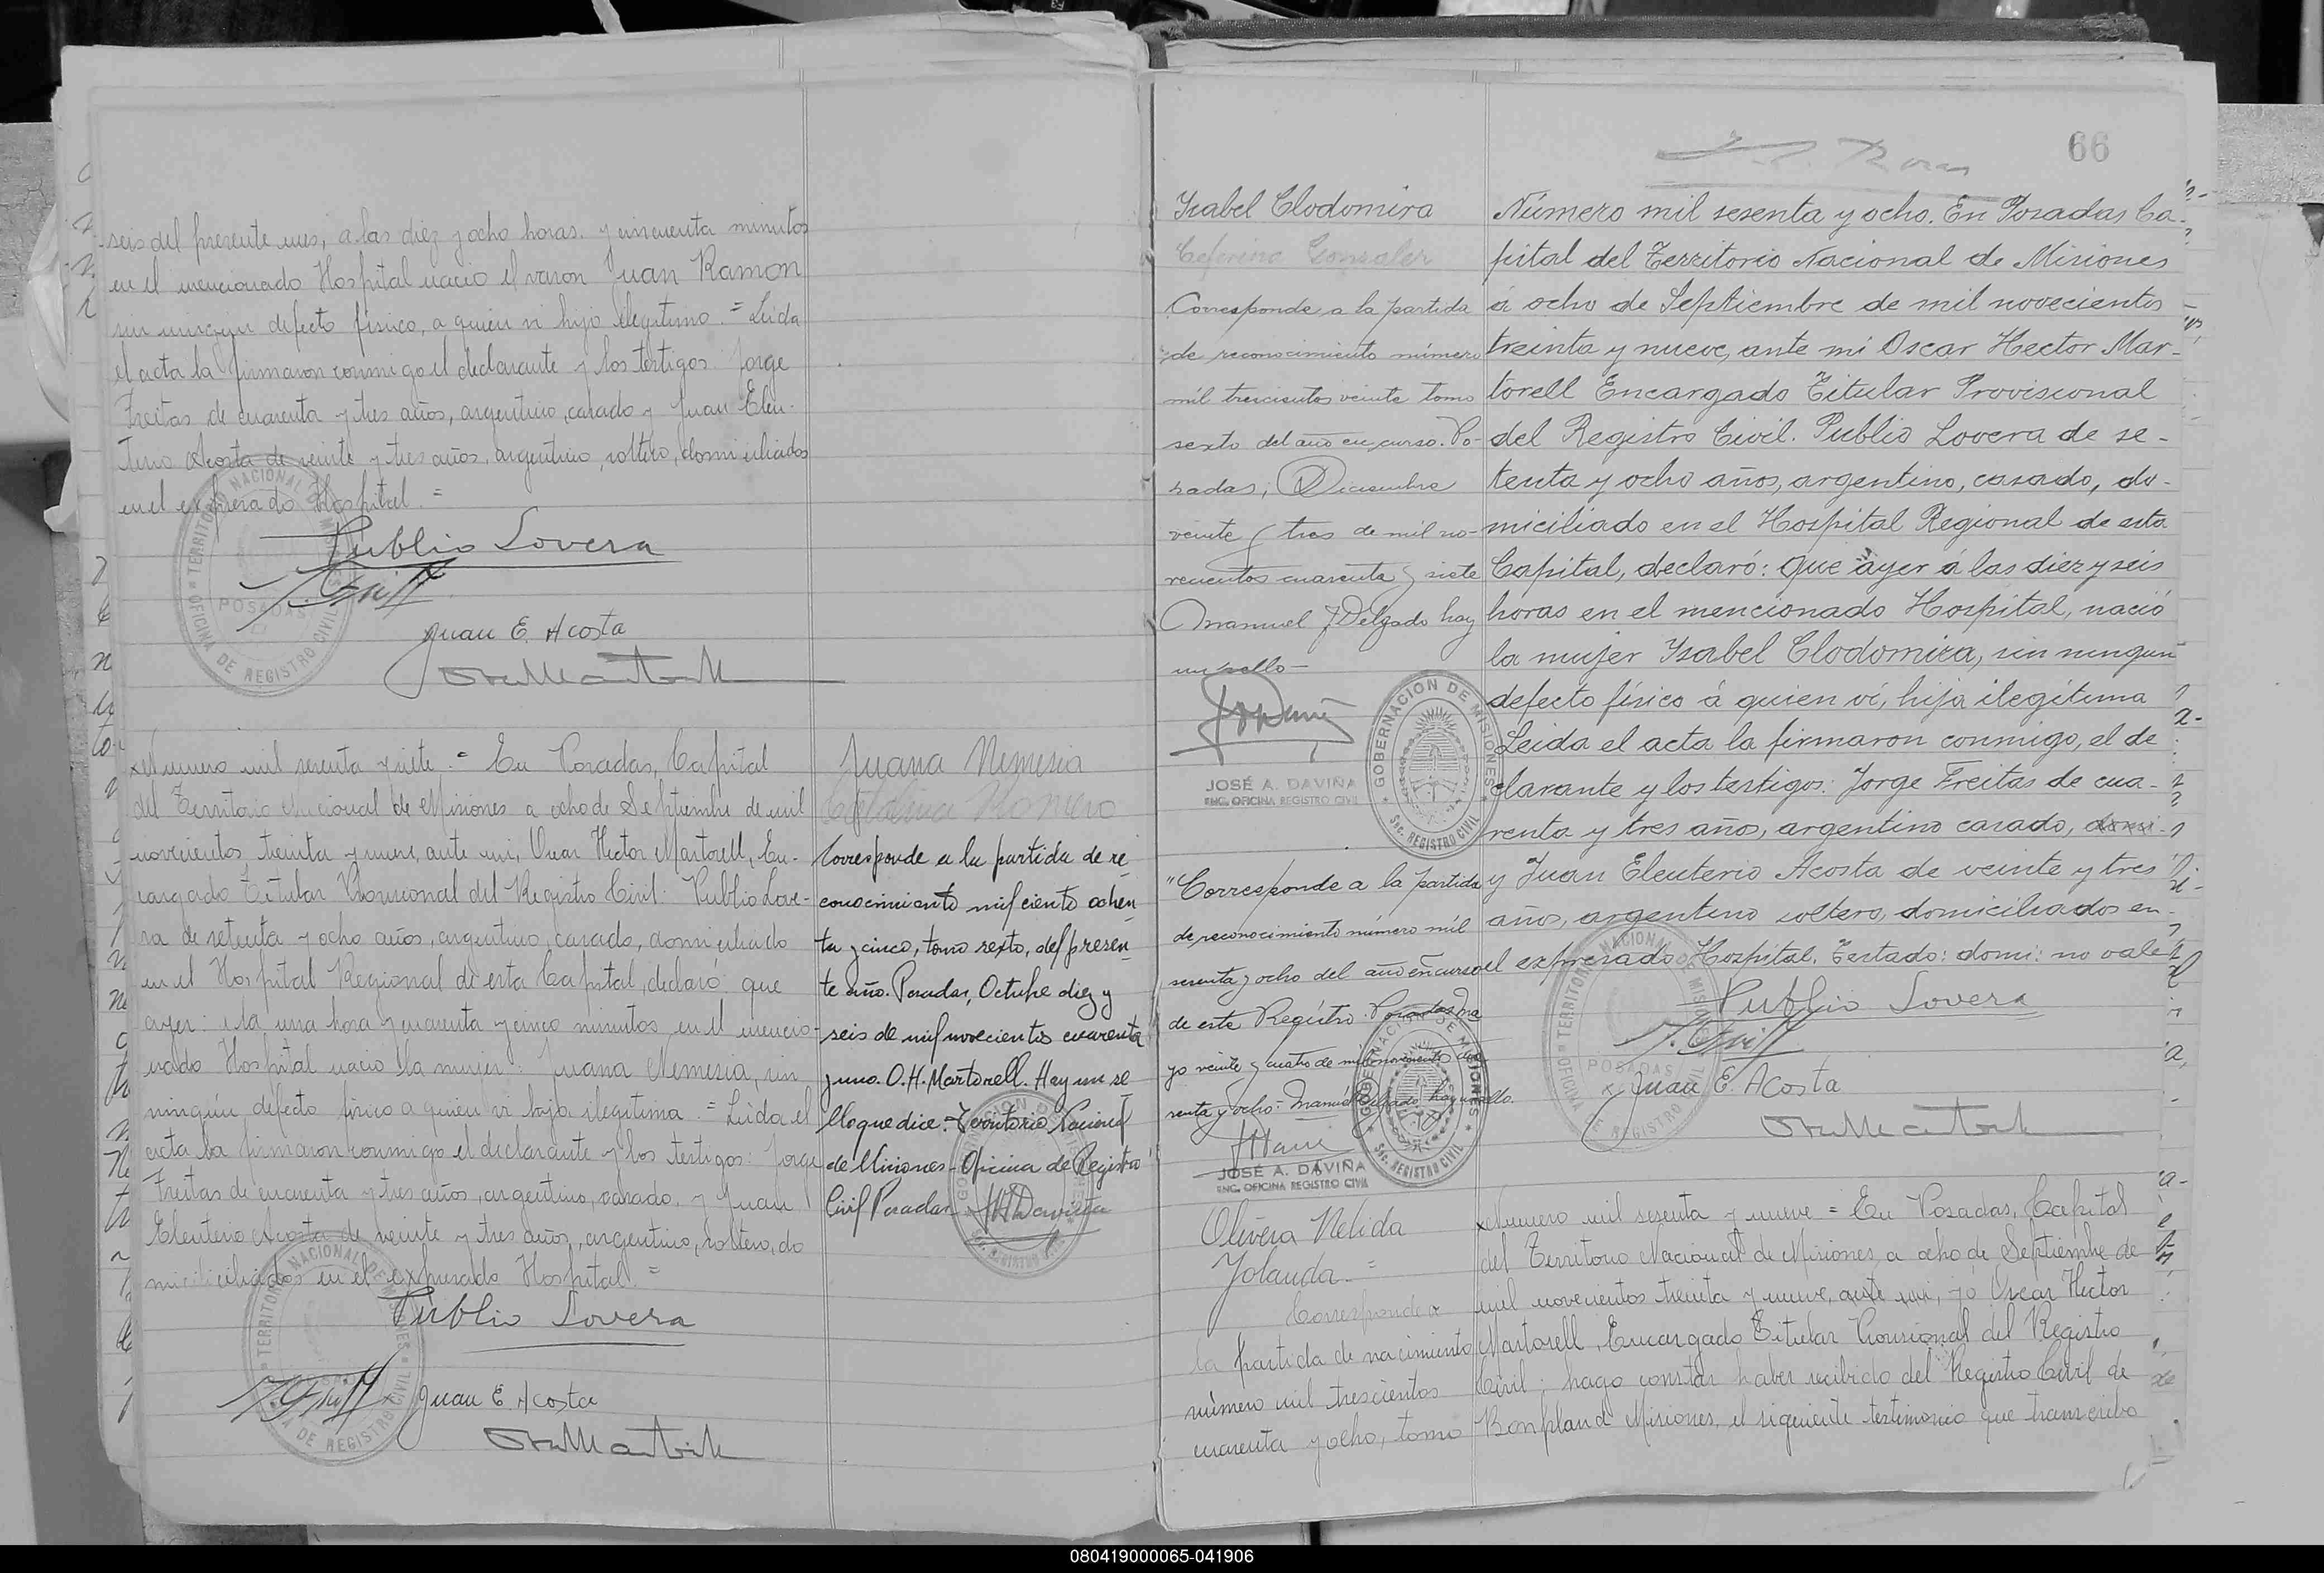 seis del presente mes, a las diez y ocho horas. y cincuenta minutos
en el mencionado Hospital nacio el varon Juan Ramon
sin ningun defecto físico, a quien vi hijo ilegitimo. = Leida
el acta la firmaron conmigo el declarante y los testigos: Jorge
Freitas de cuarenta y tres años, argentino, casado y Juan Eleu-
terio Acosta de veinte y tres años, argentino, soltero, domiciliados
en el expresado Hospital. =
Publio Lovera
Juan E. Acosta
TERRITORIO NACIONAL DE MISIONES
POSADAS
OFICINA DE REGISTRO CIVIL
Numero mil sesenta y siete. = En Posadas, Capital
del Territorio Nacional de Misiones a ocho de Septiembre de mil
novecientos treinta y nueve, ante mi, Oscar Hector Martorell, En-
cargado Titular Provisional del Registro Civil: Publio Love-
ra de setenta y ocho años, argentino, casado, domiciliado
en el Hospital Regional de esta Capital, declaro: que
ayer: a la una hora y cuarenta y cinco minutos en el mencio-
nado Hospital nacio la mujer: Juana Nemesia, sin
ningún defecto fisico a quien vi hija ilegitima. = Leida el
acta la firmaron conmigo el declarante y los testigos: Jorge
Freitas de cuarenta y tres años, argentino, casado, y Juan
Eleuterio Acosta de veinte y tres años, argentino, soltero, do
miciliciliados en el expresado Hospital. =
Publio Lovera
Juan E. Acosta
TERRITORIO NACIONAL DE MISIONES
OFICINA DE REGISTRO CIVIL
Juana Nemesia
Romero
Corresponde a la partida de re
conocimiento mil ciento ochen
ta y cinco, tomo sexto, del presen
te año. Posadas, Octubre diez y
seis de mil novecientos cuarenta
y uno. O.H. Martorell. Hay un se
llo que dice: Territorio Nacional
de Misiones - Oficina de Registro
Civil Posadas
66
Ysabel Clodomira
Ceferina Gonzalez
Corresponde a la partida
de reconocimiento número
mil trescientos veinte tomo
sexto del año en curso. Po-
sadas, Diciembre
veinte y tres de mil no-
vecientos cuarenta y siete
Manuel J Delgado hay
un sello -
JOSÉ A. DAVIÑA
ENC. OFICINA REGISTRO CIVIL
GOBERNACION DE MISIONES
Sec. REGISTRO CIVIL
"Corresponde a la partida
de reconocimiento número mil
sesenta y ocho del año en curso
de este Registro. Posadas Ma
yo veinte y cuatro de mil novecientos cua
renta y ocho: Manuel Delgado hay un sello.
JOSÉ A. DAVIÑA
ENC. OFICINA REGISTRO CIVIL
GOBERNACION DE MISIONES
Sec. REGISTRO CIVIL
Número mil sesenta y ocho. En Posadas, Ca-
pital del Territorio Nacional de Misiones
á ocho de Septiembre de mil novecientos
treinta y nueve, ante mi Oscar Hector Mar-
torell Encargado Titular Provisional
del Registro Civil. Publio Lovera de se-
tenta y ocho años, argentino, casado, do-
miciliado en el Hospital Regional de esta
Capital, declaró: que ayer á las diez y seis
horas en el mencionado Hospital, nació
la mujer Ysabel Clodomira, sin ningun
defecto físico á quien ví, hija ilegítima
Leida el acta la firmaron conmigo, el de
clarante y los testigos: Jorge Freitas de cua-
renta y tres años, argentino casado, domi-
y Juan Eleuterio Acosta de veinte y tres
años, argentino soltero, domiciliados en
el expresado Hospital. Testado: domi: no vale
Publio Lovera
Juan E. Acosta
TERRITORIO NACIONAL DE MISIONES
POSADAS
OFICINA DE REGISTRO CIVIL
Olivera Nelida
Yolanda. =
Corresponde a
la partida de nacimiento
número mil trescientos
cuarenta y ocho, tomo
Numero mil sesenta y nueve = En Posadas, Capital
del Territorio Nacional de Misiones, a ocho de Septiembre de
mil novecientos treinta y nueve, ante mi, yo Oscar Hector
Martorell, Encargado Titular Provisional del Registro
Civil; hago constar haber recibido del Registro Civil de
Bonpland Misiones, el siguiente testimonio que transcribo
080419000065-041906